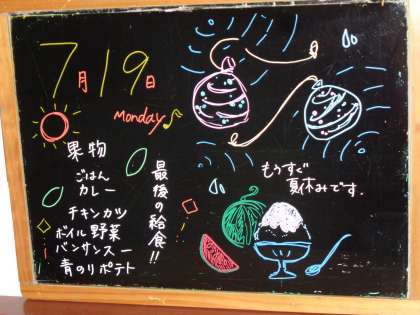 7月19日
Monday
果物
ごはん
カレー
チキンカツ
ボイル野菜
バンサンスー
青のりポテト
最後の給食!!
もうすぐ
夏休みです.